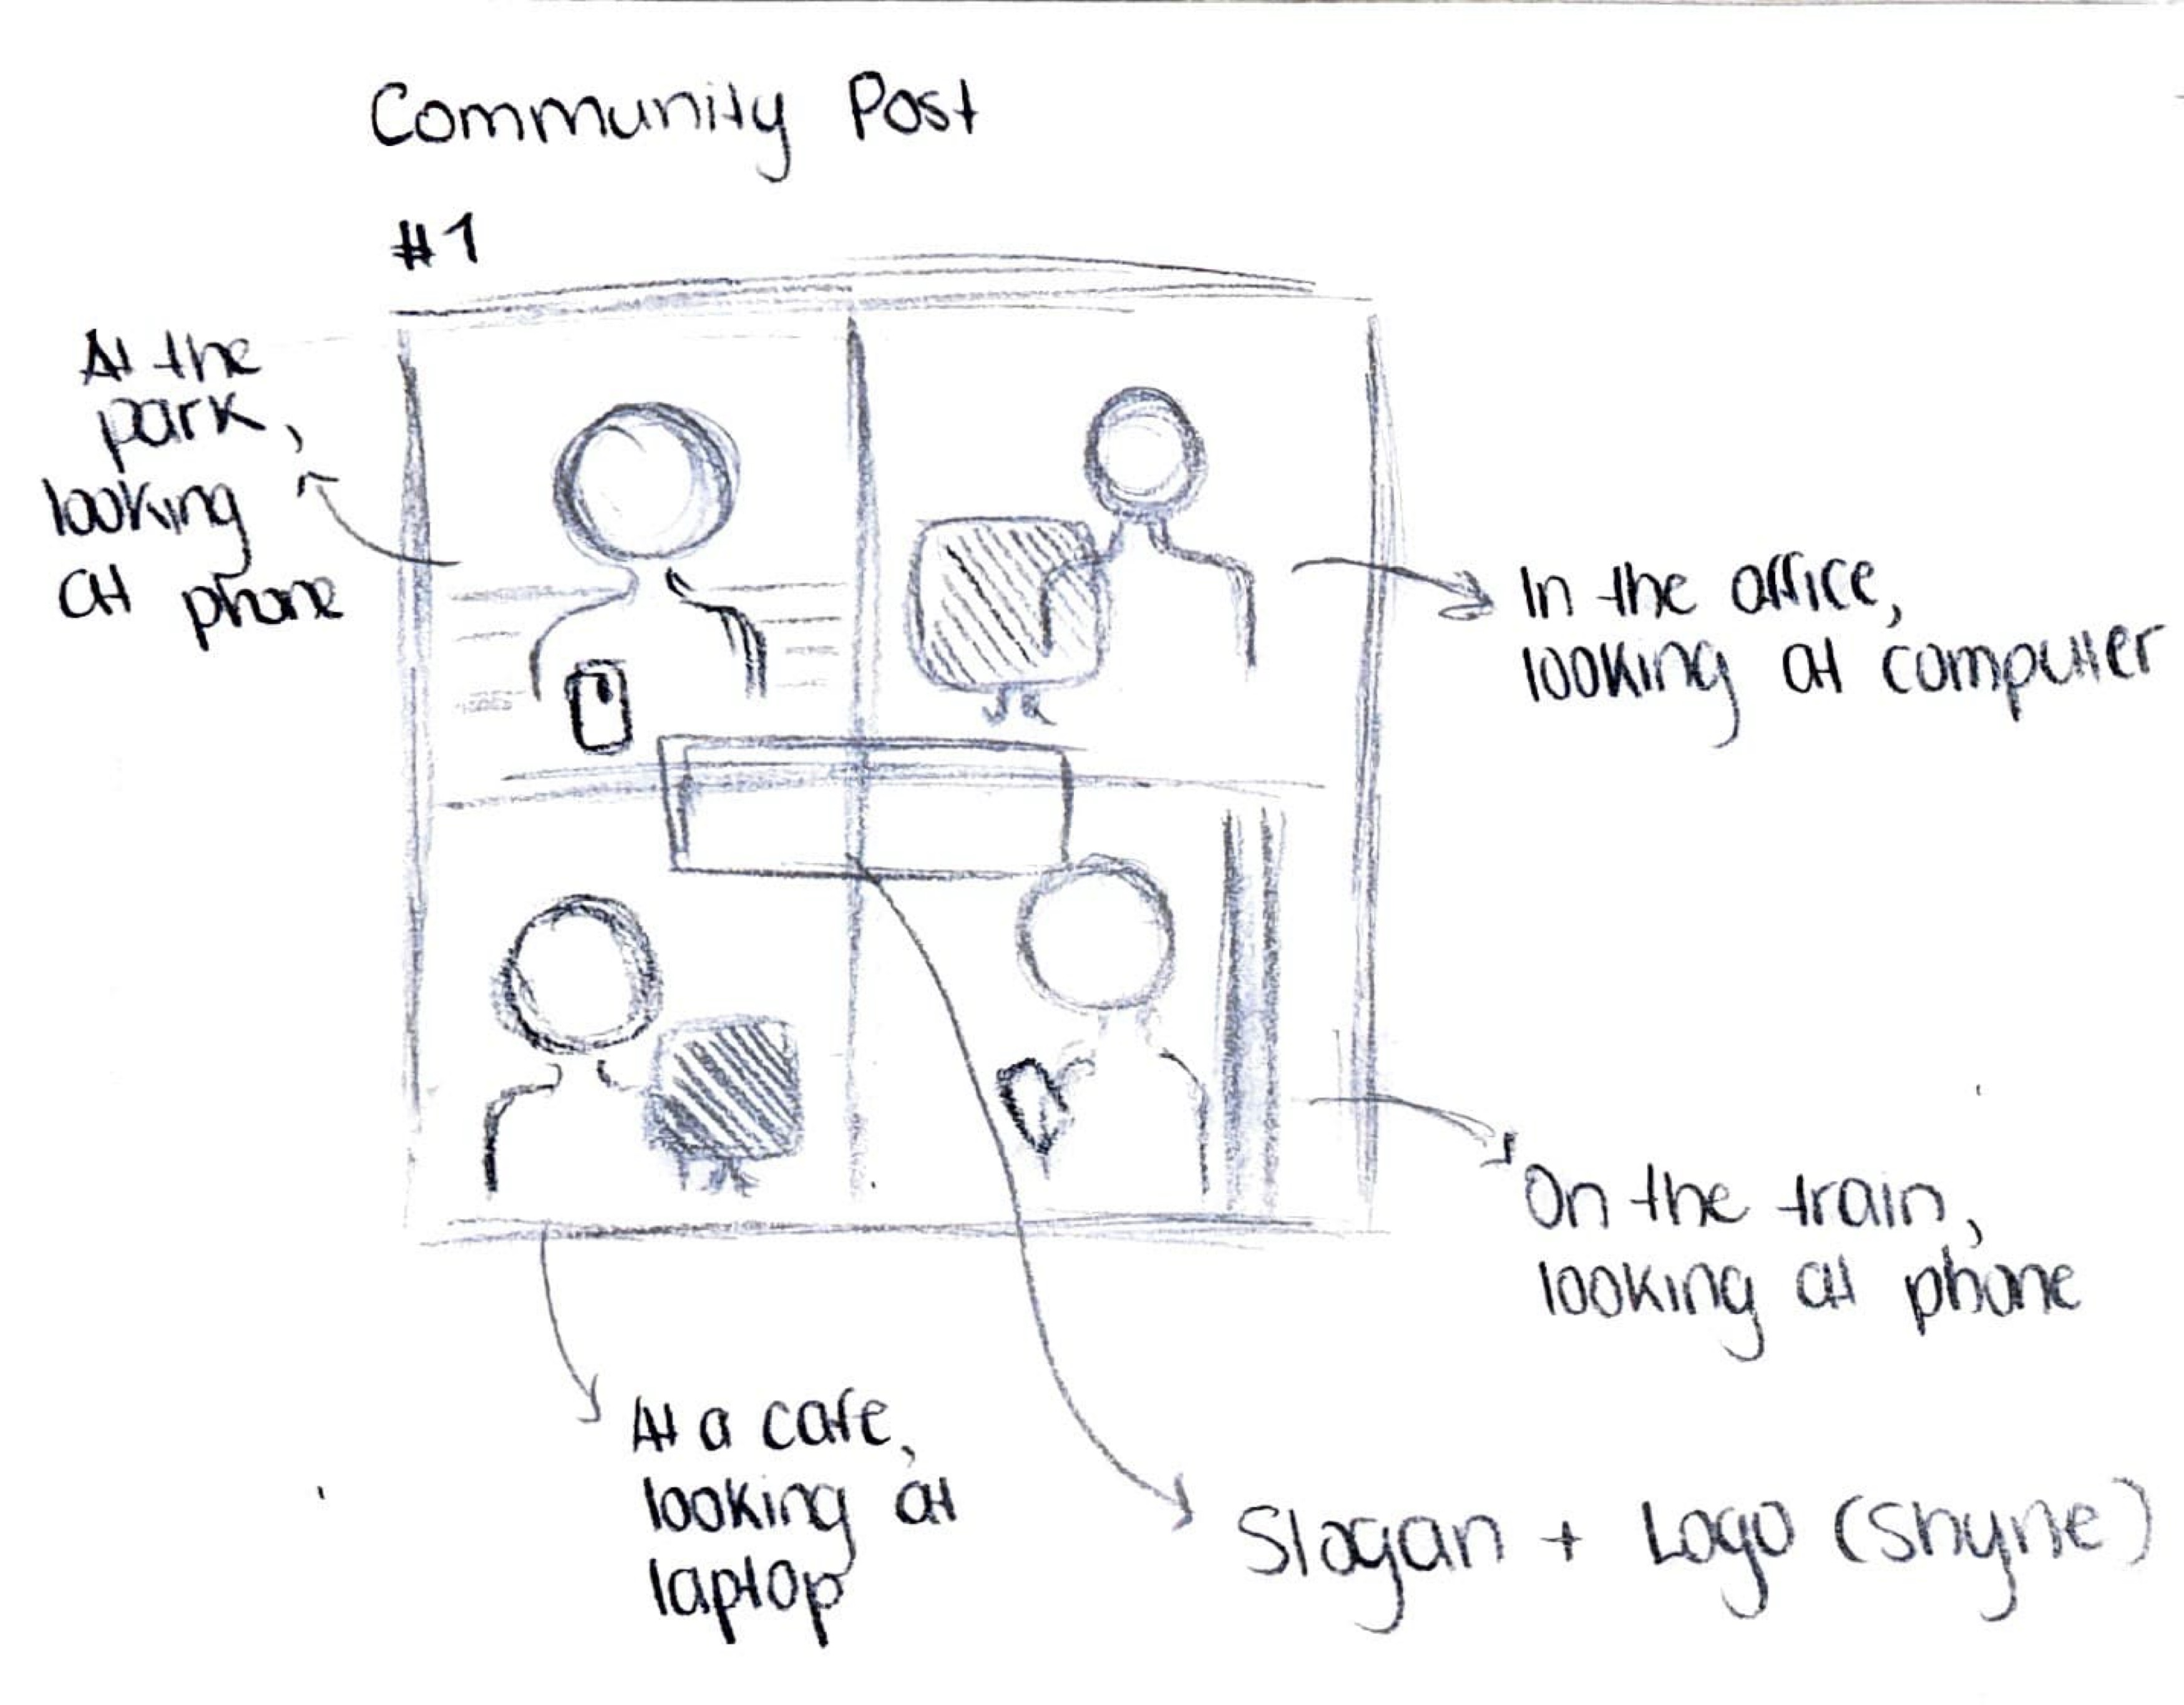 Community Post
#1
At the
park,
looking
at phone
In the office,
looking at computer
On the train,
looking at phone
At a cafe,
looking at
laptop
Slogan + Logo (Shyne)